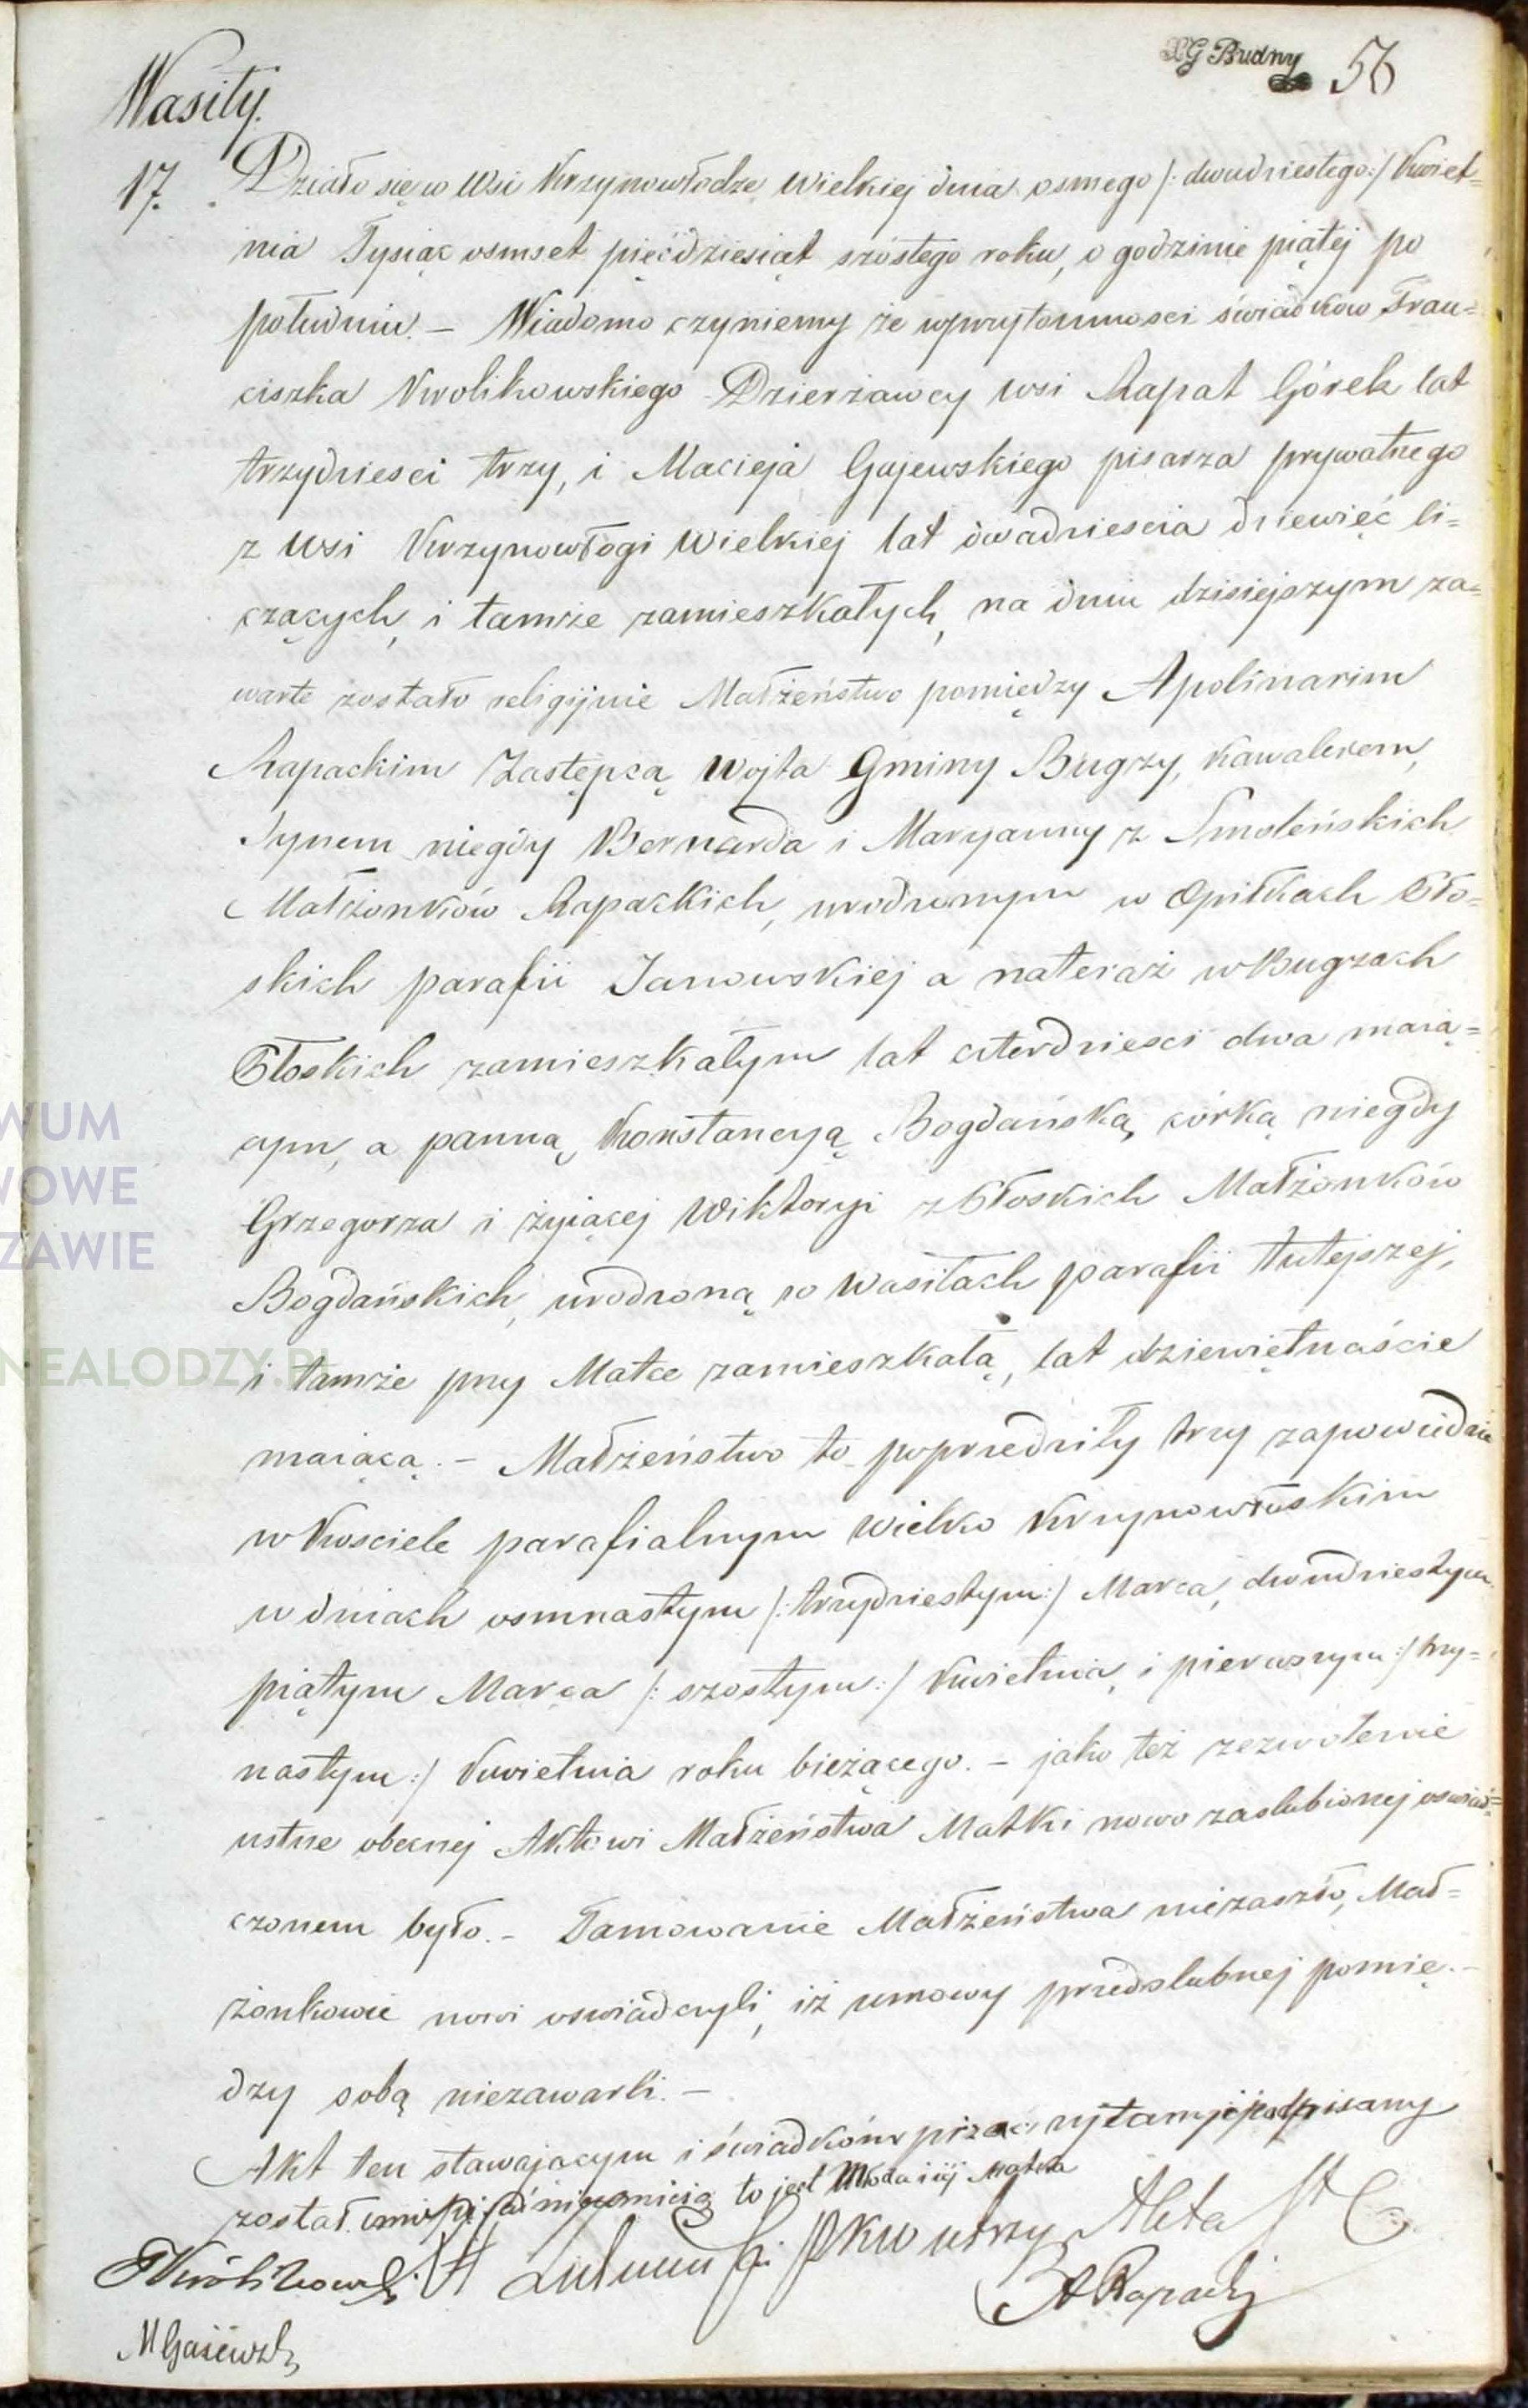 XG Budny 56
Wasiły.
17. Działo się w Wsi Krzynowłodze Wielkiej dnia osmego /: dwudziestego :/ Kwiet=
nia Tysiąc osmset pięćdziesiąt szóstego roku, o godzinie piątej po
południu. – Wiadomo czyniemy że wprzytomnosci świadkow Fran=
ciszka Krolikowskiego Dzierżawcy wsi Rapat Górek lat
trzydziesci trzy, i Macieja Gajewskiego pisarza prywatnego
z Wsi Krzynowłogi Wielkiej lat dwadziescia dziewięć li=
czących, i tamże zamieszkałych, na dniu dzisiejszym za=
warte zostało religijnie Małżeństwo pomiędzy Apolinarim
Rapackim Zastępcą Wojta Gminy Bugrzy, Kawalerem,
Synem niegdy Bernarda i Maryanny z Smoleńskich
Małżonków Rapackich, urodzonym w Opiłkach Pło=
skich parafii Janowskiej a nateraż w Bugzach
Płoskich zamieszkałym lat czterdziesci dwa maią=
cym, a panną, Konstancyą Bogdańską, córką niegdy
Grzegorza i żyiącej Wiktoryi z Płoskich Małżonków
Bogdańskich, urodzoną w Wasiłach parafii tutejszej,
i tamże przy Matce zamieszkałą, lat dziewiętnaście
maiącą. – Małżeństwo to poprzedziły trzy zapowiedzie
w Kosciele parafialnym Wielko Krzynowłoskim
w dniach osmnastym /: trzydziestym :/ Marca, dwudziestym
piątym Marca /: szostym :/ Kwietnia, i pierwszym :/ trzy=
nastym :/ Kwietnia roku bieżącego. – jako też zezwolenie
ustne obecnej Aktowi Małżeństwa Matki nowo zaslubionej oswiad=
czonem było. – Tamowanie Małżeństwa niezaszło, Mał=
żonkowie nowi oswiadczyli, iż umowy przedslubnej pomię.–
dzy sobą niezawarli. –
Akt ten stawającym i świadkóm przeczytany i podpisany
został umią to jest Młoda i iéj Matka
FKrólikowski Akta
A Rapacki
M Gaiewski
WUM
WOWE
ZAWIE
NEALODZY.PL